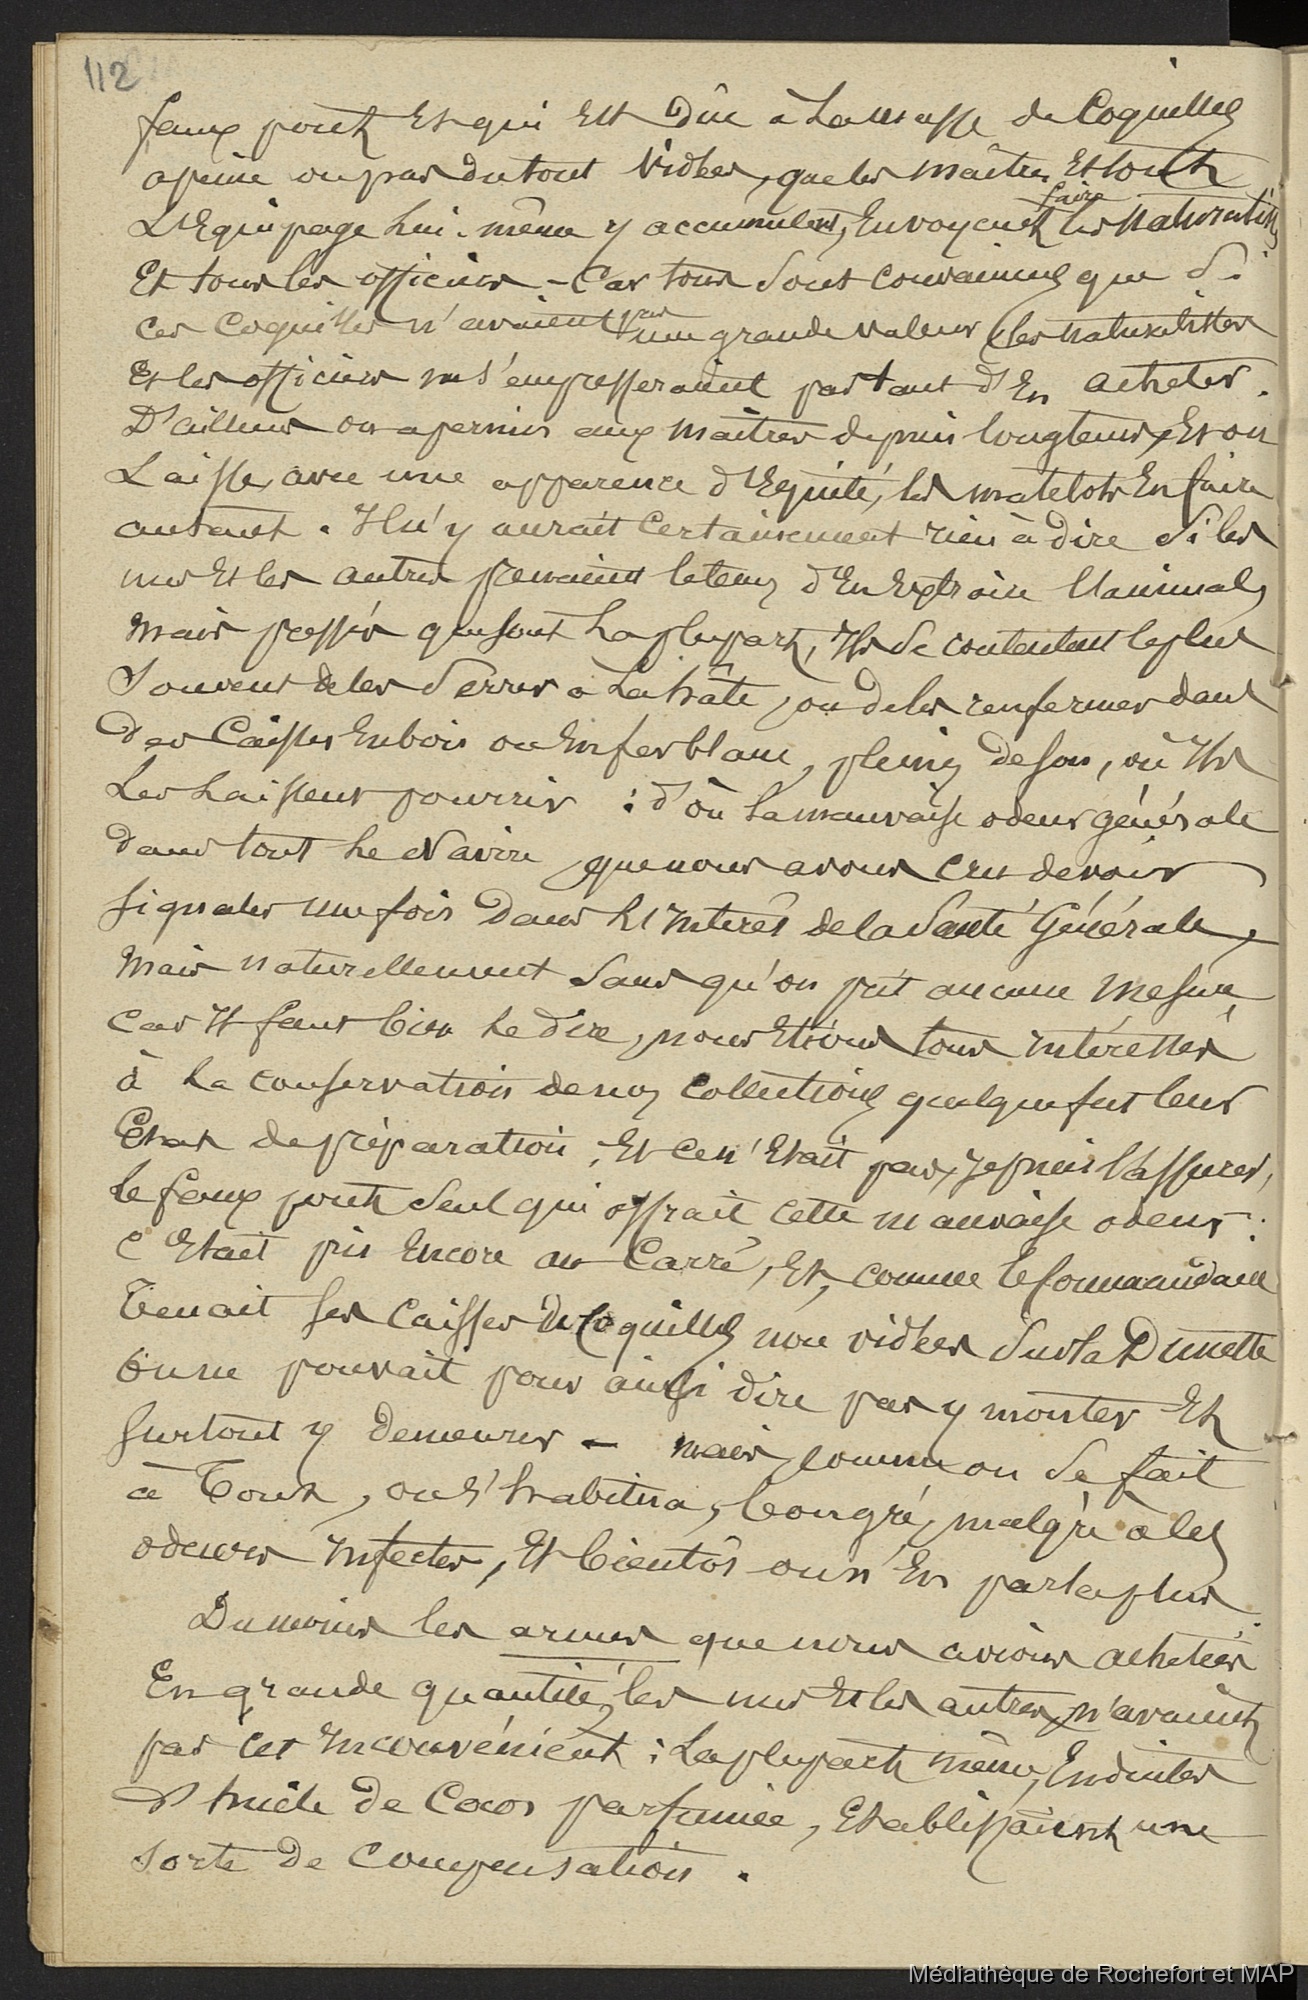 112
faux pont Et qui Est Dûe à La masse de Coquilles
apeine ou pas du tout Vidées, que les Maîtres Et tout
L'Equipage Lui-même y accumulent, En voyant faire les Naturalistes
Et tous les officiers - Car tous sont convaincus que si
ces Coquilles n'avaient pas une grande valeur les naturalistes
Et les officiers ne s'empresseraient pas tant d'En acheter.
D'ailleurs on a permis aux Maîtres depuis longtems, Et on
Laisse, avec une apparence d'Equité, les matelots En faire
autant. Il n'y aurait Certainement rien à dire si les
uns Et les autres prenaient le tems d'En Extraire l'animal,
Mais pressés que sont La plupart, Ils se contentent le plus
Souvent de les Serrer à La hâte, ou de les renfermer dans
Des Caisses En bois ou En fer blanc, pleines de son, où Ils
Les Laissent pourrir : d'où La mauvaise odeur générale
Dans tout Le Navire, que nous avons cru devoir
signaler une fois Dans L'Intérêt de la Santé Générale,
Mais naturellement Sans qu'on prît aucune Mesure,
Car Il faut bien Le dire, nous Etions tous intéressés
à La conservation de nos Collections quelque fut leur
Etat de préparation, Et ce n'Etait pas, Je puis l'assurer,
le faux pont Seul qui offrait cette mauvaise odeur :
c'Etait pis Encore au Carré, Et, comme le Commandant
Tenait ses Caisses de Coquilles non vidées Sur la Dunette
On ne pouvait pour ainsi dire pas y monter Et
surtout y Demeurer - mais, comme on se fait
à Tout, on s'habitua, bongré, malgré à les
odeurs Infectes, Et bientôt on n'En parla plus.
Du moins les armes que nous avions achetées
En grande quantité, les uns Et les autres, n'avaient
pas cet Inconvénient : La plupart même, Enduites
d'huile de Cocos parfumée, Etablissaient une
Sorte De Compensation.
Médiathèque de Rochefort et MAP